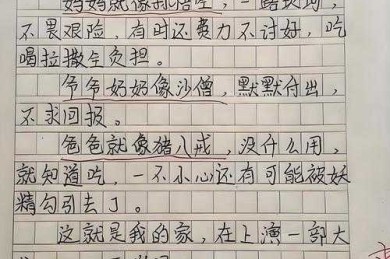 妈妈就像孙悟空，一路坎坷，
不畏艰险，有时还费力不讨好，吃
喝拉撒全负担。
爷爷奶奶像沙僧，默默付出，
不求回报。
爸爸就像猪八戒，没什么用，
就知道吃，一不小心还有可能被妖
精勾引去了。
这就是我的家，在上演一部大